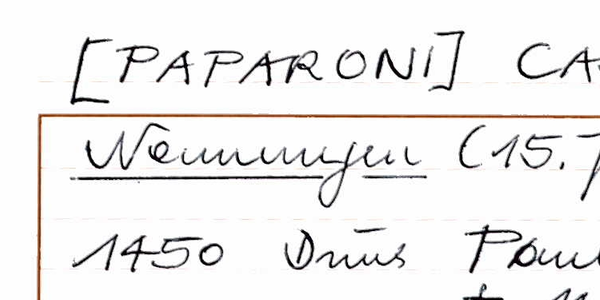 [PAPARONI] CA
Nennungen (15.
1450 Dn̄us Pau